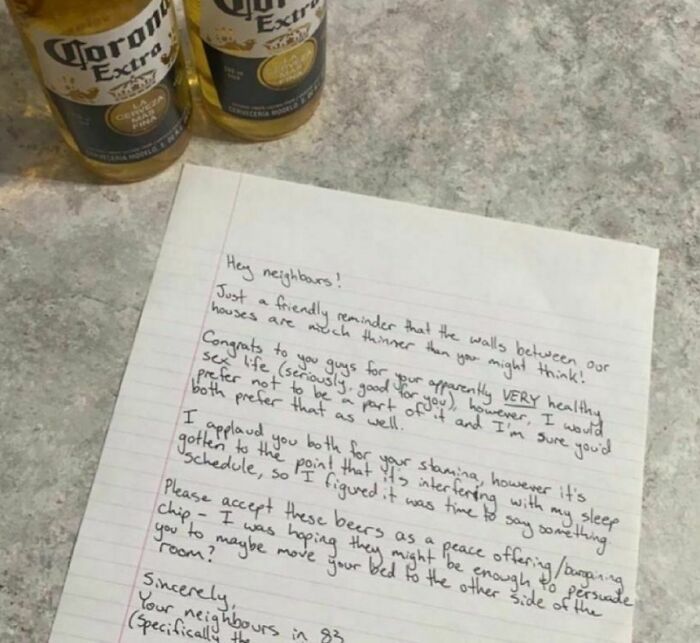 Corona
Extra
LA
CERVEZA
MAS
FINA
Corona
Extra
LA
CERVEZA
MAS
FINA
CERVECERIA MODELO
Hey neighbours!
Just a friendly reminder that the walls between our
houses are much thinner than you might think!
Congrats to you guys for your apparently VERY healthy
sex life (seriously, good for you), however, I would
prefer not to be a part of it and I'm sure you'd
both prefer that as well.
I applaud you both for your stamina, however it's
gotten to the point that it's interfering with my sleep
schedule, so I figured it was time to say something.
Please accept these beers as a peace offering/bargaining
chip - I was hoping they might be enough to persuade
you to maybe move your bed to the other side of the
room?
Sincerely,
Your neighbours in 83
(specifically the